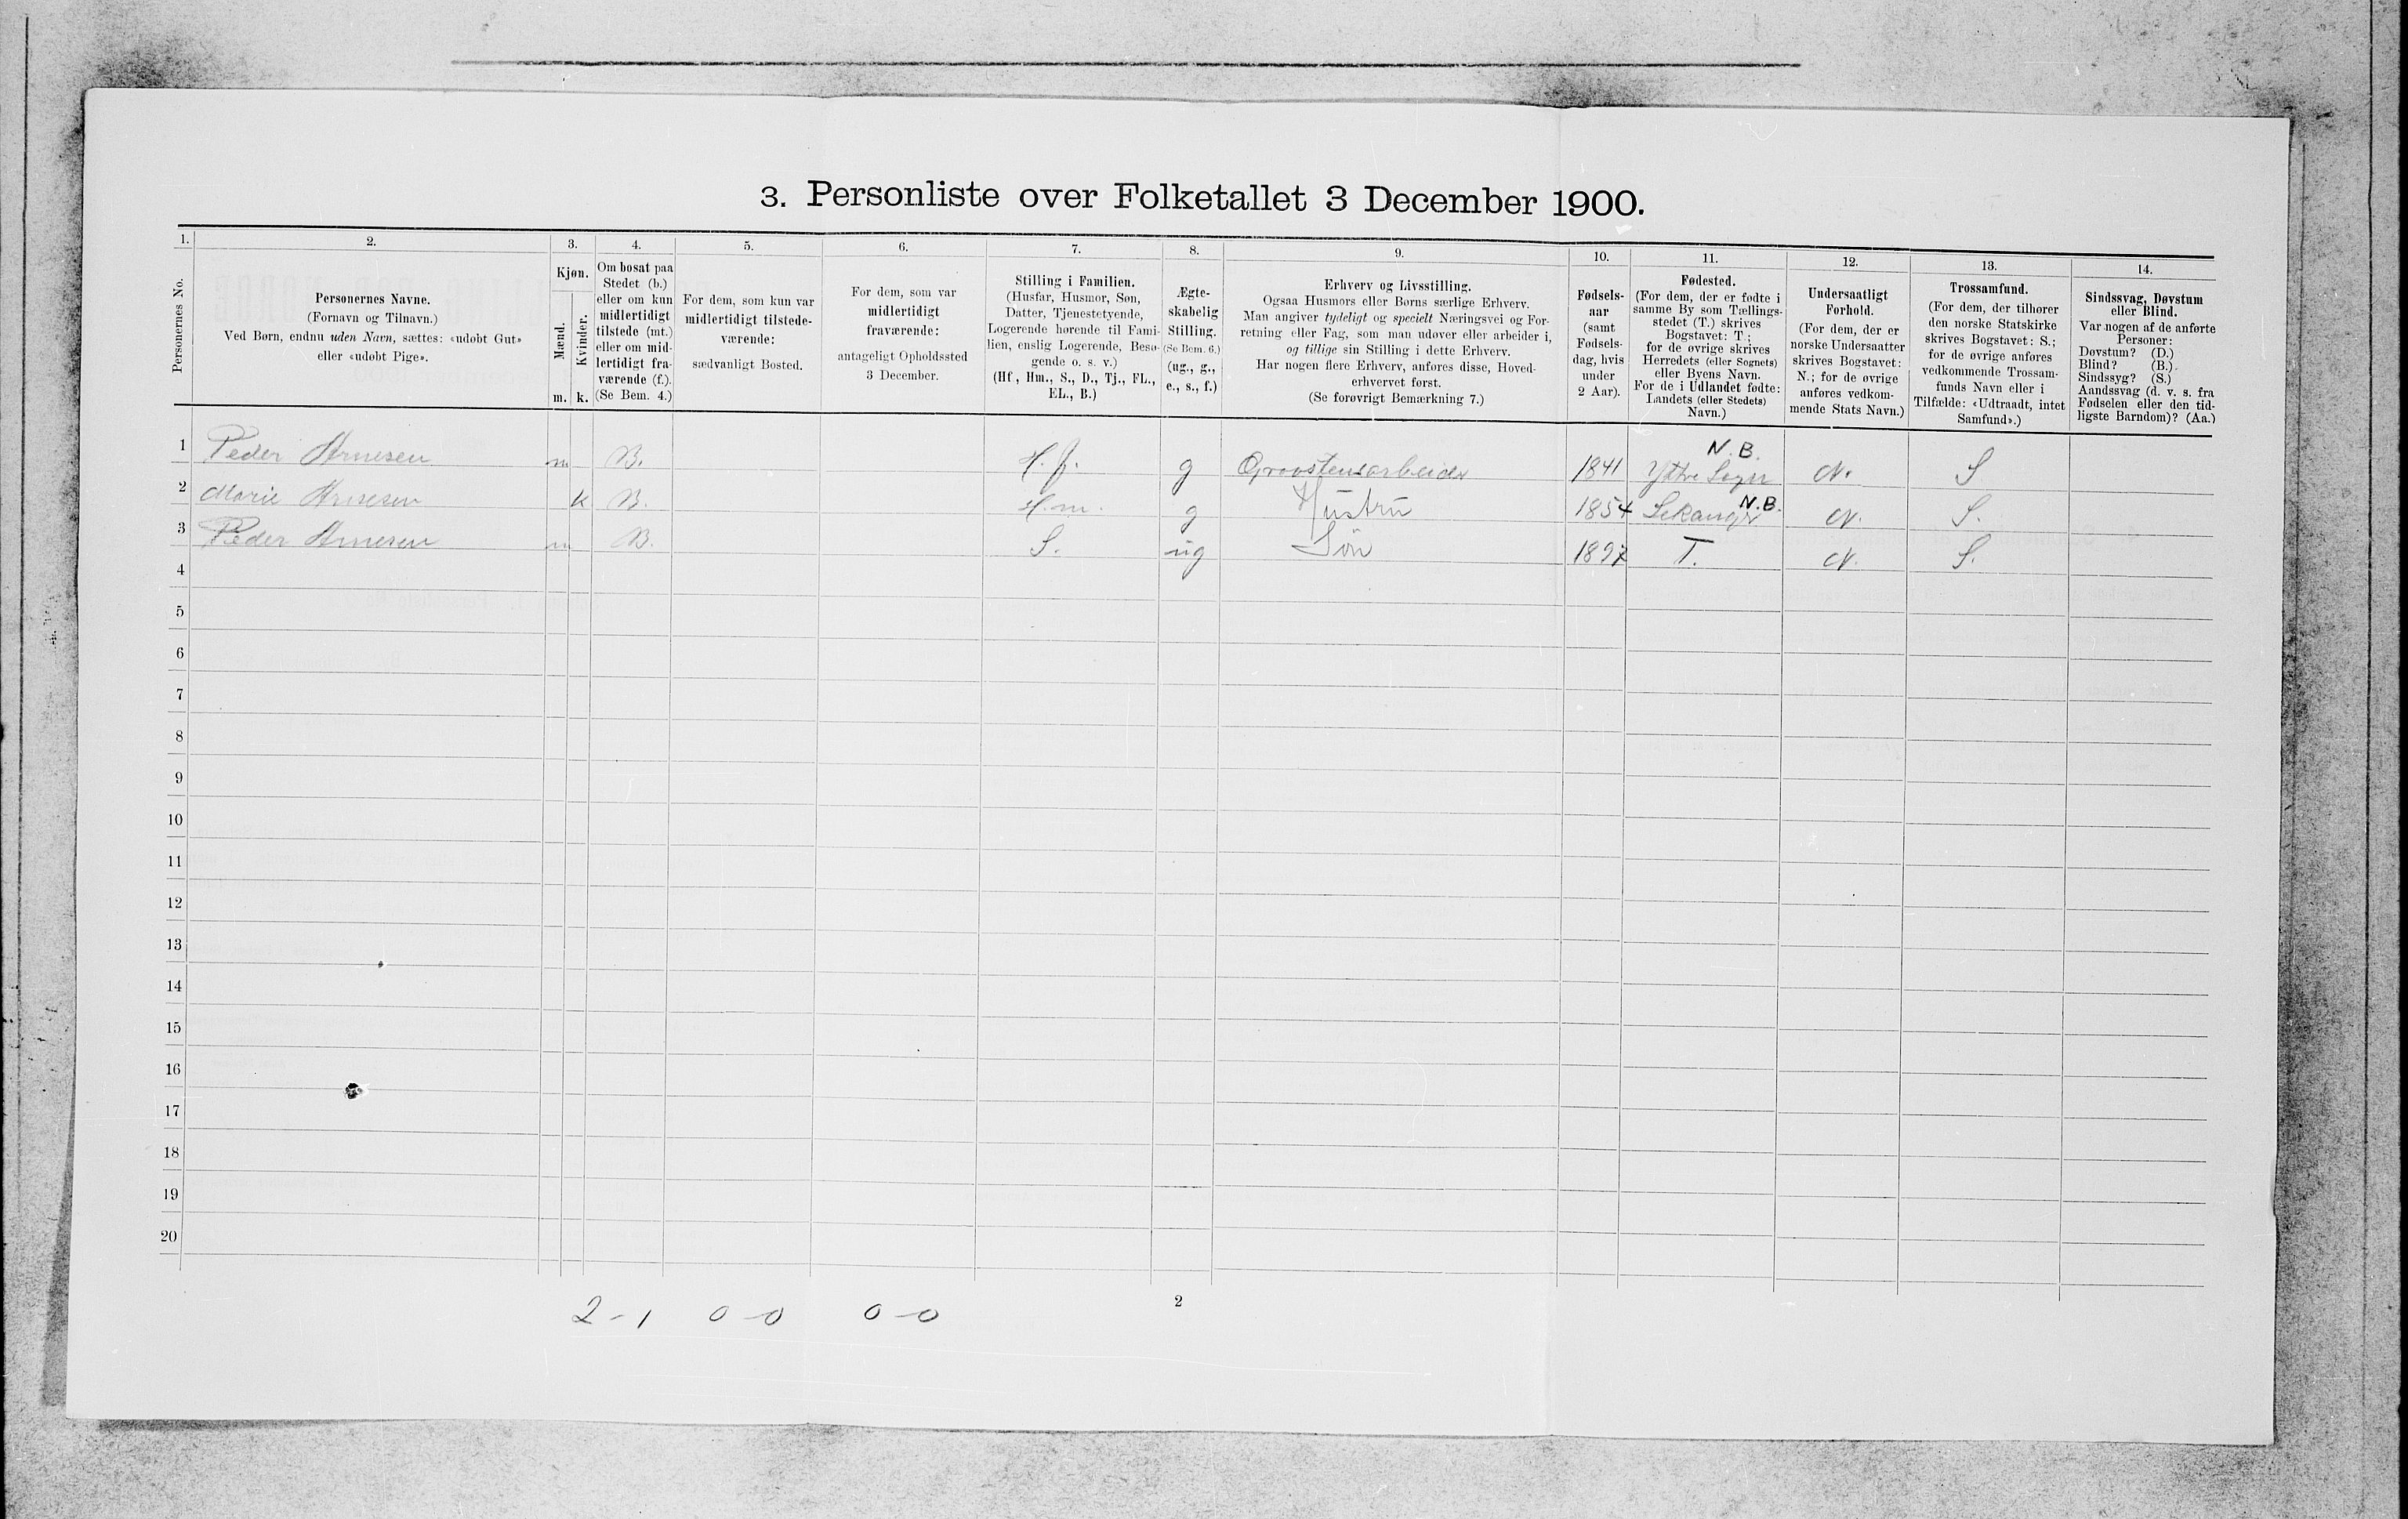 3. Personliste over Folketallet 3 December 1900.
1. 2. 3. 4. 5. 6. 7. 8. 9. 10. 11. 12. 13. 14.
Personernes No.
Personernes Navne.
(Fornavn og Tilnavn.)
Ved Børn, endnu uden Navn, sættes: «udøbt Gut»
eller «udøbt Pige».
Kjøn.
Mænd.
Kvinder.
m. k.
Om bosat paa
Stedet (b.)
eller om kun
midlertidigt
tilstede (mt.)
eller om mid-
lertidigt fra-
værende (f.).
(Se Bem. 4.)
For dem, som kun var
midlertidigt tilstede-
værende:
sædvanligt Bosted.
For dem, som var
midlertidigt
fraværende:
antageligt Opholdssted
3 December.
Stilling i Familien.
(Husfar, Husmor, Søn,
Datter, Tjenestetyende,
Logerende hørende til Fami-
lien, enslig Logerende, Besø-
gende o. s. v.)
(Hf, Hm., S., D., Tj., FL.,
EL., B.)
Ægte-
skabelig
Stilling.
(Se Bem. 6.)
(ug., g.,
e., s., f.)
Erhverv og Livsstilling.
Ogsaa Husmors eller Børns særlige Erhverv.
Man angiver tydeligt og specielt Næringsvei og For-
retning eller Fag, som man udøver eller arbeider i,
og tillige sin Stilling i dette Erhverv.
Har nogen flere Erhverv, anføres disse, Hoved-
erhvervet først.
(Se forøvrigt Bemærkning 7.)
Fødsels-
aar
(samt
Fødsels-
dag, hvis
under
2 Aar).
Fødested.
(For dem, der er fødte i
samme By som Tællings-
stedet (T.) skrives
Bogstavet: T.;
for de øvrige skrives
Herredets (eller Sognets)
eller Byens Navn.
For de i Udlandet fødte:
Landets (eller Stedets)
Navn.)
Undersaatligt
Forhold.
(For dem, der er
norske Undersaatter
skrives Bogstavet:
N.; for de øvrige
anføres vedkom-
mende Stats Navn.)
Trossamfund.
(For dem, der tilhører
den norske Statskirke
skrives Bogstavet: S.;
for de øvrige anføres
vedkommende Trossam-
funds Navn eller i
Tilfælde: «Udtraadt, intet
Samfund».)
Sindssvag, Døvstum
eller Blind.
Var nogen af de anførte
Personer:
Døvstum? (D.)
Blind? (B.)
Sindssyg? (S.)
Aandssvag (d. v. s. fra
Fødselen eller den tid-
ligste Barndom)? (Aa.)
N.B.
1 Peder Arnesen m B. H.f. g Graastensarbeider 1841 Yttre Sogn N. S
2 Marie Arnesen k B. H.m. g Hustru 1854 Lekanger N.B. N. S.
3 Peder Arnesen m B. S. ug Søn 1897 T. N. S.
4
5
6
7
8
9
10
11
12
13
14
15
16
17
18
19
20
2-1 0-0 0-0
2